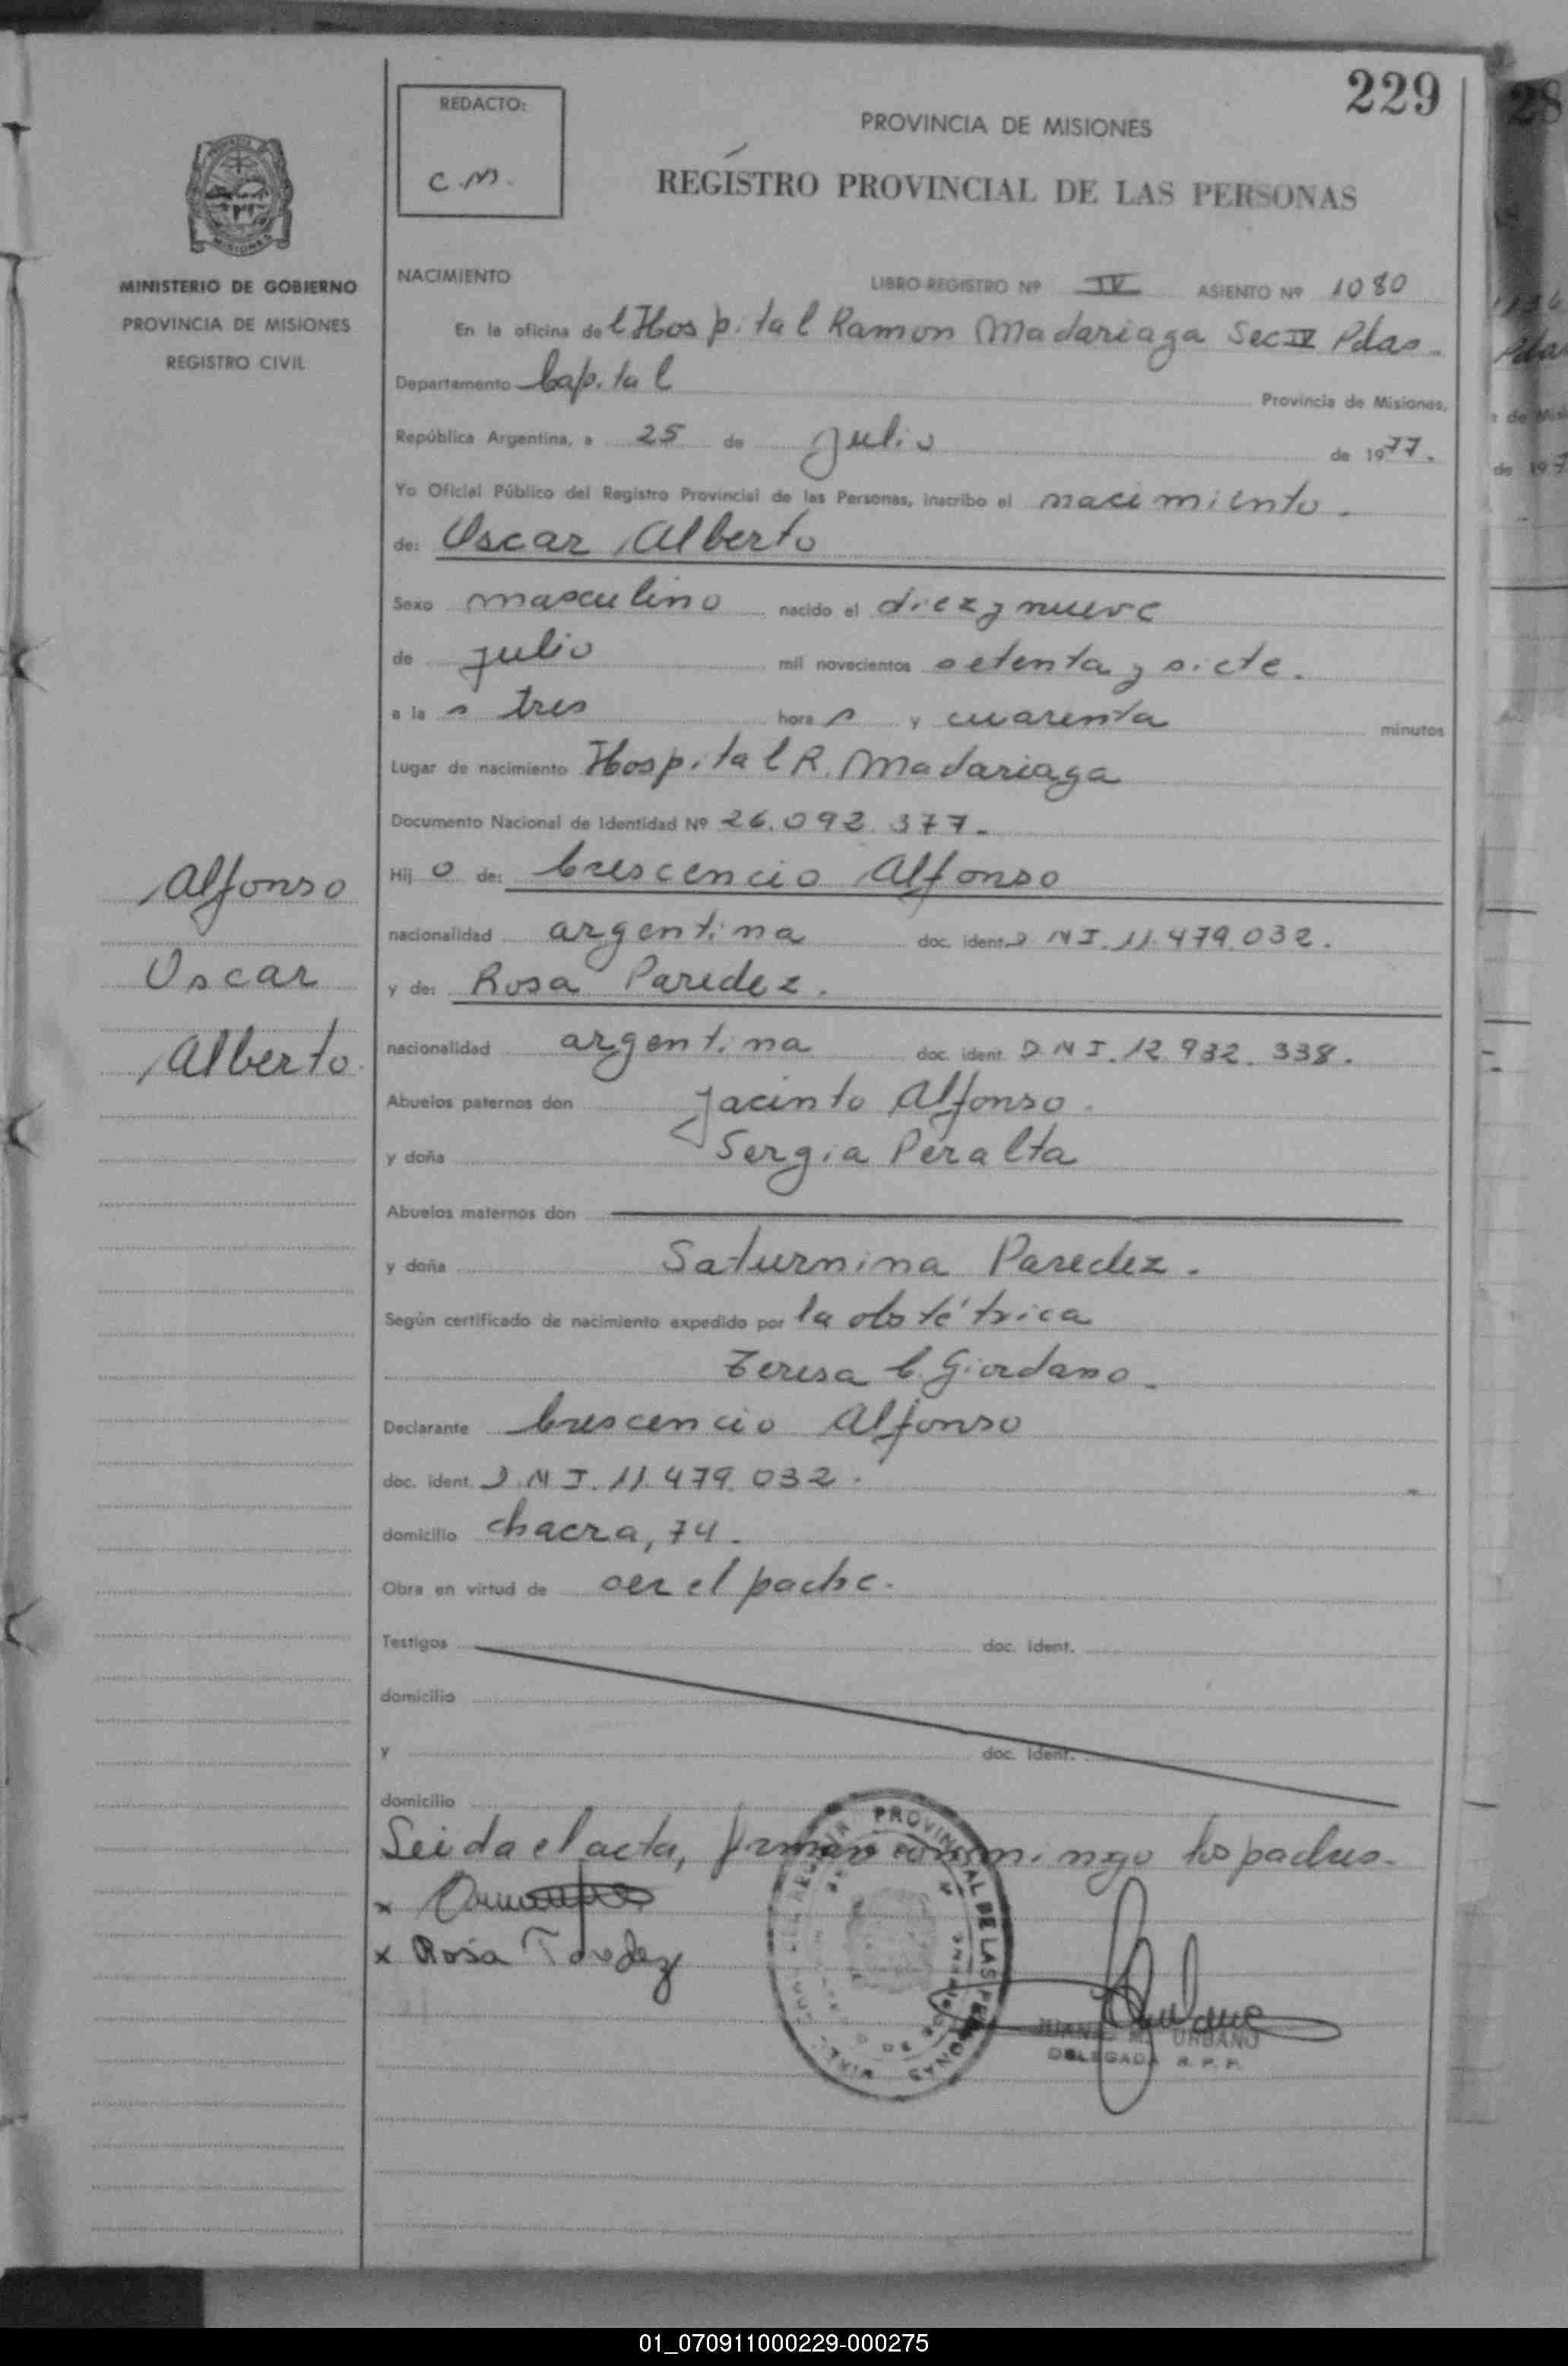 229
REDACTO:
C.M.
PROVINCIA DE MISIONES
REGISTRO PROVINCIAL DE LAS PERSONAS
MINISTERIO DE GOBIERNO
PROVINCIA DE MISIONES
REGISTRO CIVIL
NACIMIENTO LIBRO-REGISTRO Nº IV ASIENTO Nº 1080
En la oficina del Hospital Ramon Madariaga Sec IV Pdas.
Departamento Capital Provincia de Misiones,
República Argentina, a 25 de Julio de 1977.
Yo Oficial Público del Registro Provincial de las Personas, inscribo el nacimiento.
de: Oscar Alberto
Sexo masculino nacido el diez y nueve
de julio mil novecientos setenta y siete.
a las tres horas y cuarenta minutos
Lugar de nacimiento Hospital R. Madariaga
Documento Nacional de Identidad Nº 26.092.377.
Hijo de: Crescencio Alfonso
nacionalidad argentina doc. ident. D N I. 11.479.032.
y de: Rosa Paredez.
nacionalidad argentina doc. ident. D.N I. 12.932.338.
Abuelos paternos don Jacinto Alfonso.
y doña Sergia Peralta
Abuelos maternos don
y doña Saturnina Paredez.
Según certificado de nacimiento expedido por la obstétrica
Teresa C. Giordano.
Declarante Crescencio Alfonso
doc. ident. D.N I. 11.479.032.
domicilio chacra, 74.
Obra en virtud de ser el padre.
Testigos doc. ident.
domicilio
y doc. ident.
domicilio
Leida el acta, firman conmingo los padres.
x
x Rosa Paredez
PROVINCIAL DE LAS PERSONAS
URBANO
DELEGADA R. P. P.
Alfonso
Oscar
Alberto.
01_070911000229-000275